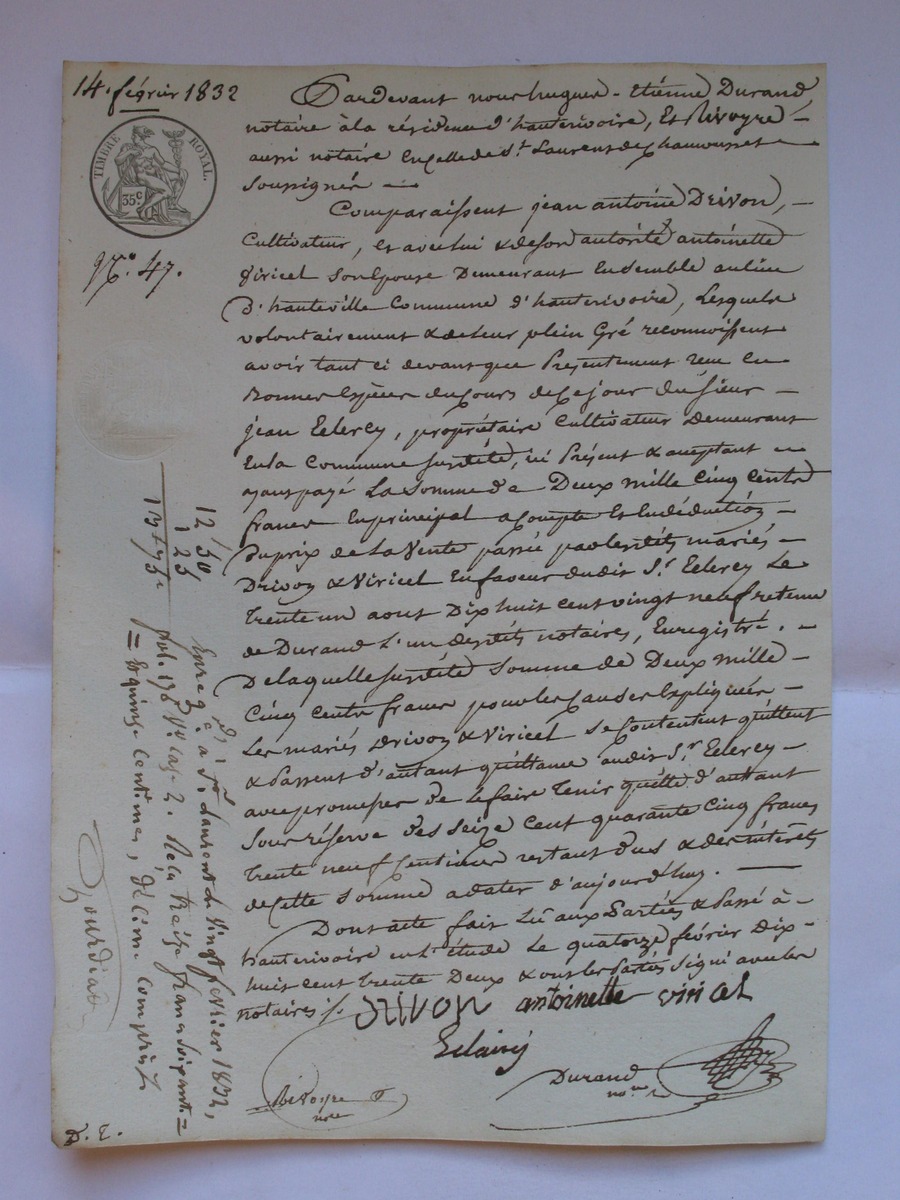 14 février 1832
TIMBRE ROYAL.
35c
N.o 47.
Pardevant nous hugues-Etienne Durand
notaire à la résidence d'hauterivoire, Et Rivoyre
aussi notaire En celle de St. Laurent de chamousset
Soussignés
Comparaissent jean antoine Drivon,
Cultivateur, et avec lui & de son autorité antoinette
Viricel Son Epouse Demeurant Ensemble au lieu
D'hauteville Commune d'hauterivoire, Lesquels
volontairement & de leur plein Gré reconnoissent
avoir tant ci devant que Présentement reçu en
Bonnes Espèces du Cours de Ce jour du Sieur
jean Eclercy, propriétaire Cultivateur Demeurant
En la Commune susditte, ici Présent & aceptant
ayant payé La Somme de Deux mille Cinq Cents
francs En principal a Compte Et En déduction
Du prix de La Vente passée par lesdits mariés
Drivon & Viricel En faveur dudit Sr. Eclercy Le
trente un aout Dix huit Cent vingt neuf retenue
de Durand L'un desdits notaires, Enregistré.
De laquelle susditte Somme de Deux mille
Cinq Cents francs pour les Causes Expliquées
Les mariés Drivon & Viricel Se Contentent quittent
& Passent d'autant quittance audit Sr. Eclercy
avec promesse De le faire Tenir quitte d'autant
Sous réserve des Seize Cent quarante Cinq francs
trente neuf Centimes restant dus & des intérêts
de Cette Somme a dater d'aujourd'huy.
Dont acte fait Lû aux Parties & Passé à
hauterivoire en L'étude Le quatorze février Dix-
huit Cent trente Deux & ont les Parties Signé avec les
notaires /.
Drivon antoinette viricel
Eclaircy
Durand
nore
Rivoyre
nore
12 50
1 25
13 75
Enregé à St. Laurent le Vingt février 1832,
fol. 178 Vo Cas. 2. Reçu treize francs soixante
= Et quinze centimes, décime compris
Gourdiat
D. E.